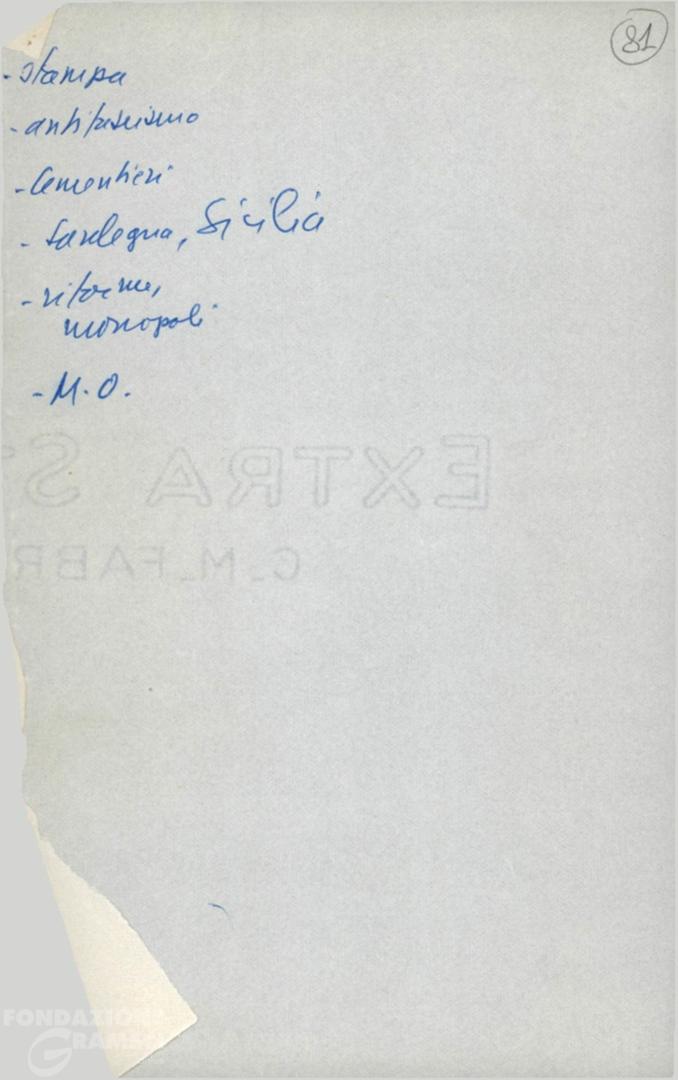 81
- stampa
- antifascismo
- Cementieri
- Sardegna, Sicilia
- riforme,
monopoli
- M.O.
EXTRA S
C.M. FABR
FONDAZIONE
GRAMSCI